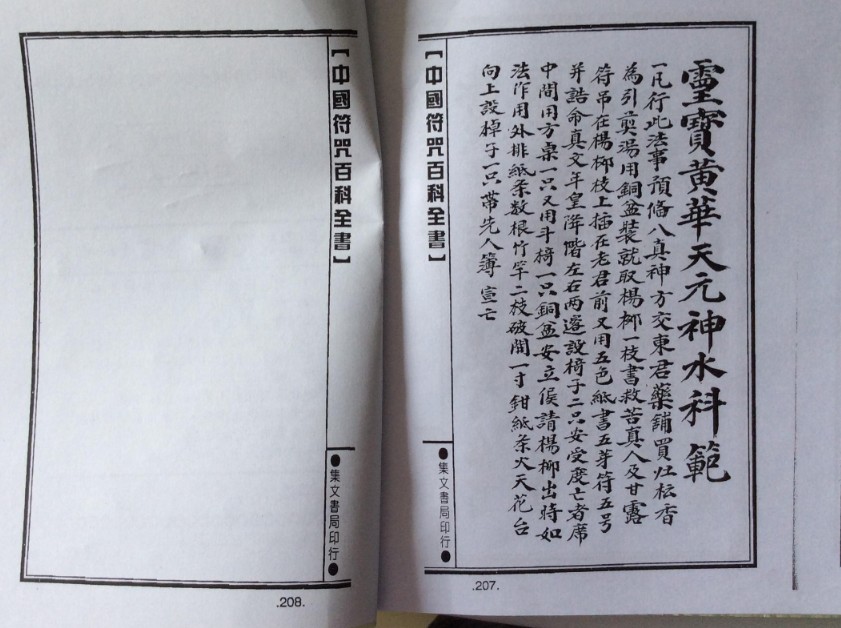 靈寶黄華天元神水科範
一凡行此法事預備八真神方交東君藥舖買灶枟香
為引煎湯用銅盆裝就取楊柳一枝書救苦真人及甘露
符吊在楊柳枝上插在老君前又用五色紙書五芽符五号
并誥命真文年皇降階左右両邊設椅子二只安受度亡者席
中間用方桌一只又用斗椅一只銅盆安立侯請楊柳出時如
法作用外排紙条数根竹竿二枝破開一寸鉗紙条火天花台
向上設棹子一只帶先人簿 宣亡
【中國符咒百科全書】
●集文書局印行●
.207.
【中國符咒百科全書】
●集文書局印行●
.208.